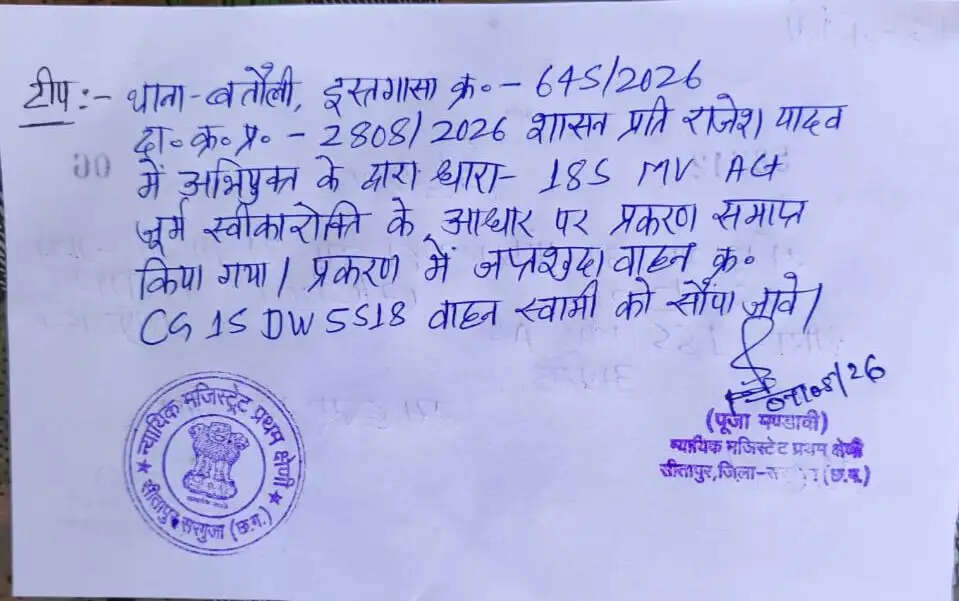 टीप:- थाना-बतौली, इस्तगासा क्र०- 645/2026
दा० क्र० प्र० - 2808/2026 शासन प्रति राजेश यादव
में अभियुक्त के द्वारा धारा- 185 MV Act
जुर्म स्वीकारोक्ति के आधार पर प्रकरण समाप्त
किया गया। प्रकरण में जप्तशुदा वाहन क्र०
CG 15 DW 5518 वाहन स्वामी को सौंपा जावे।
(पूजा मण्डावी)
न्यायिक मजिस्टेट प्रथम श्रेणी
सीतापुर, जिला- (छ.ग.)
न्यायिक मजिस्ट्रेट प्रथम श्रेणी
सीतापुर सरगुजा (छ.ग.)